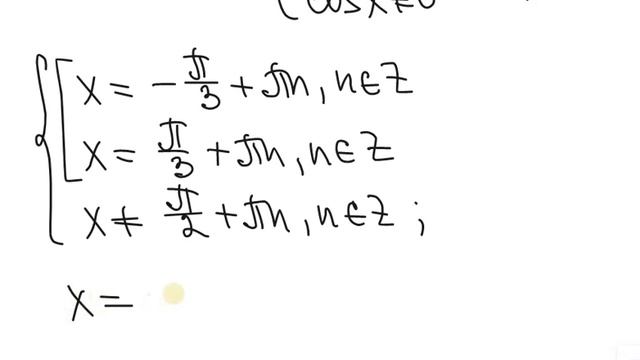 { cos x ≠ 0
x = -π/3 + πn, n ∈ Z
x = π/3 + πn, n ∈ Z
x ≠ π/2 + πn, n ∈ Z;
x =